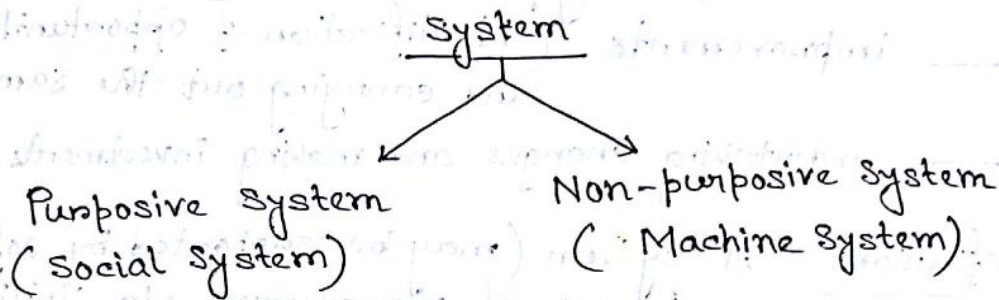 System
Purposive System
(Social System)
Non-purposive System
(Machine System)